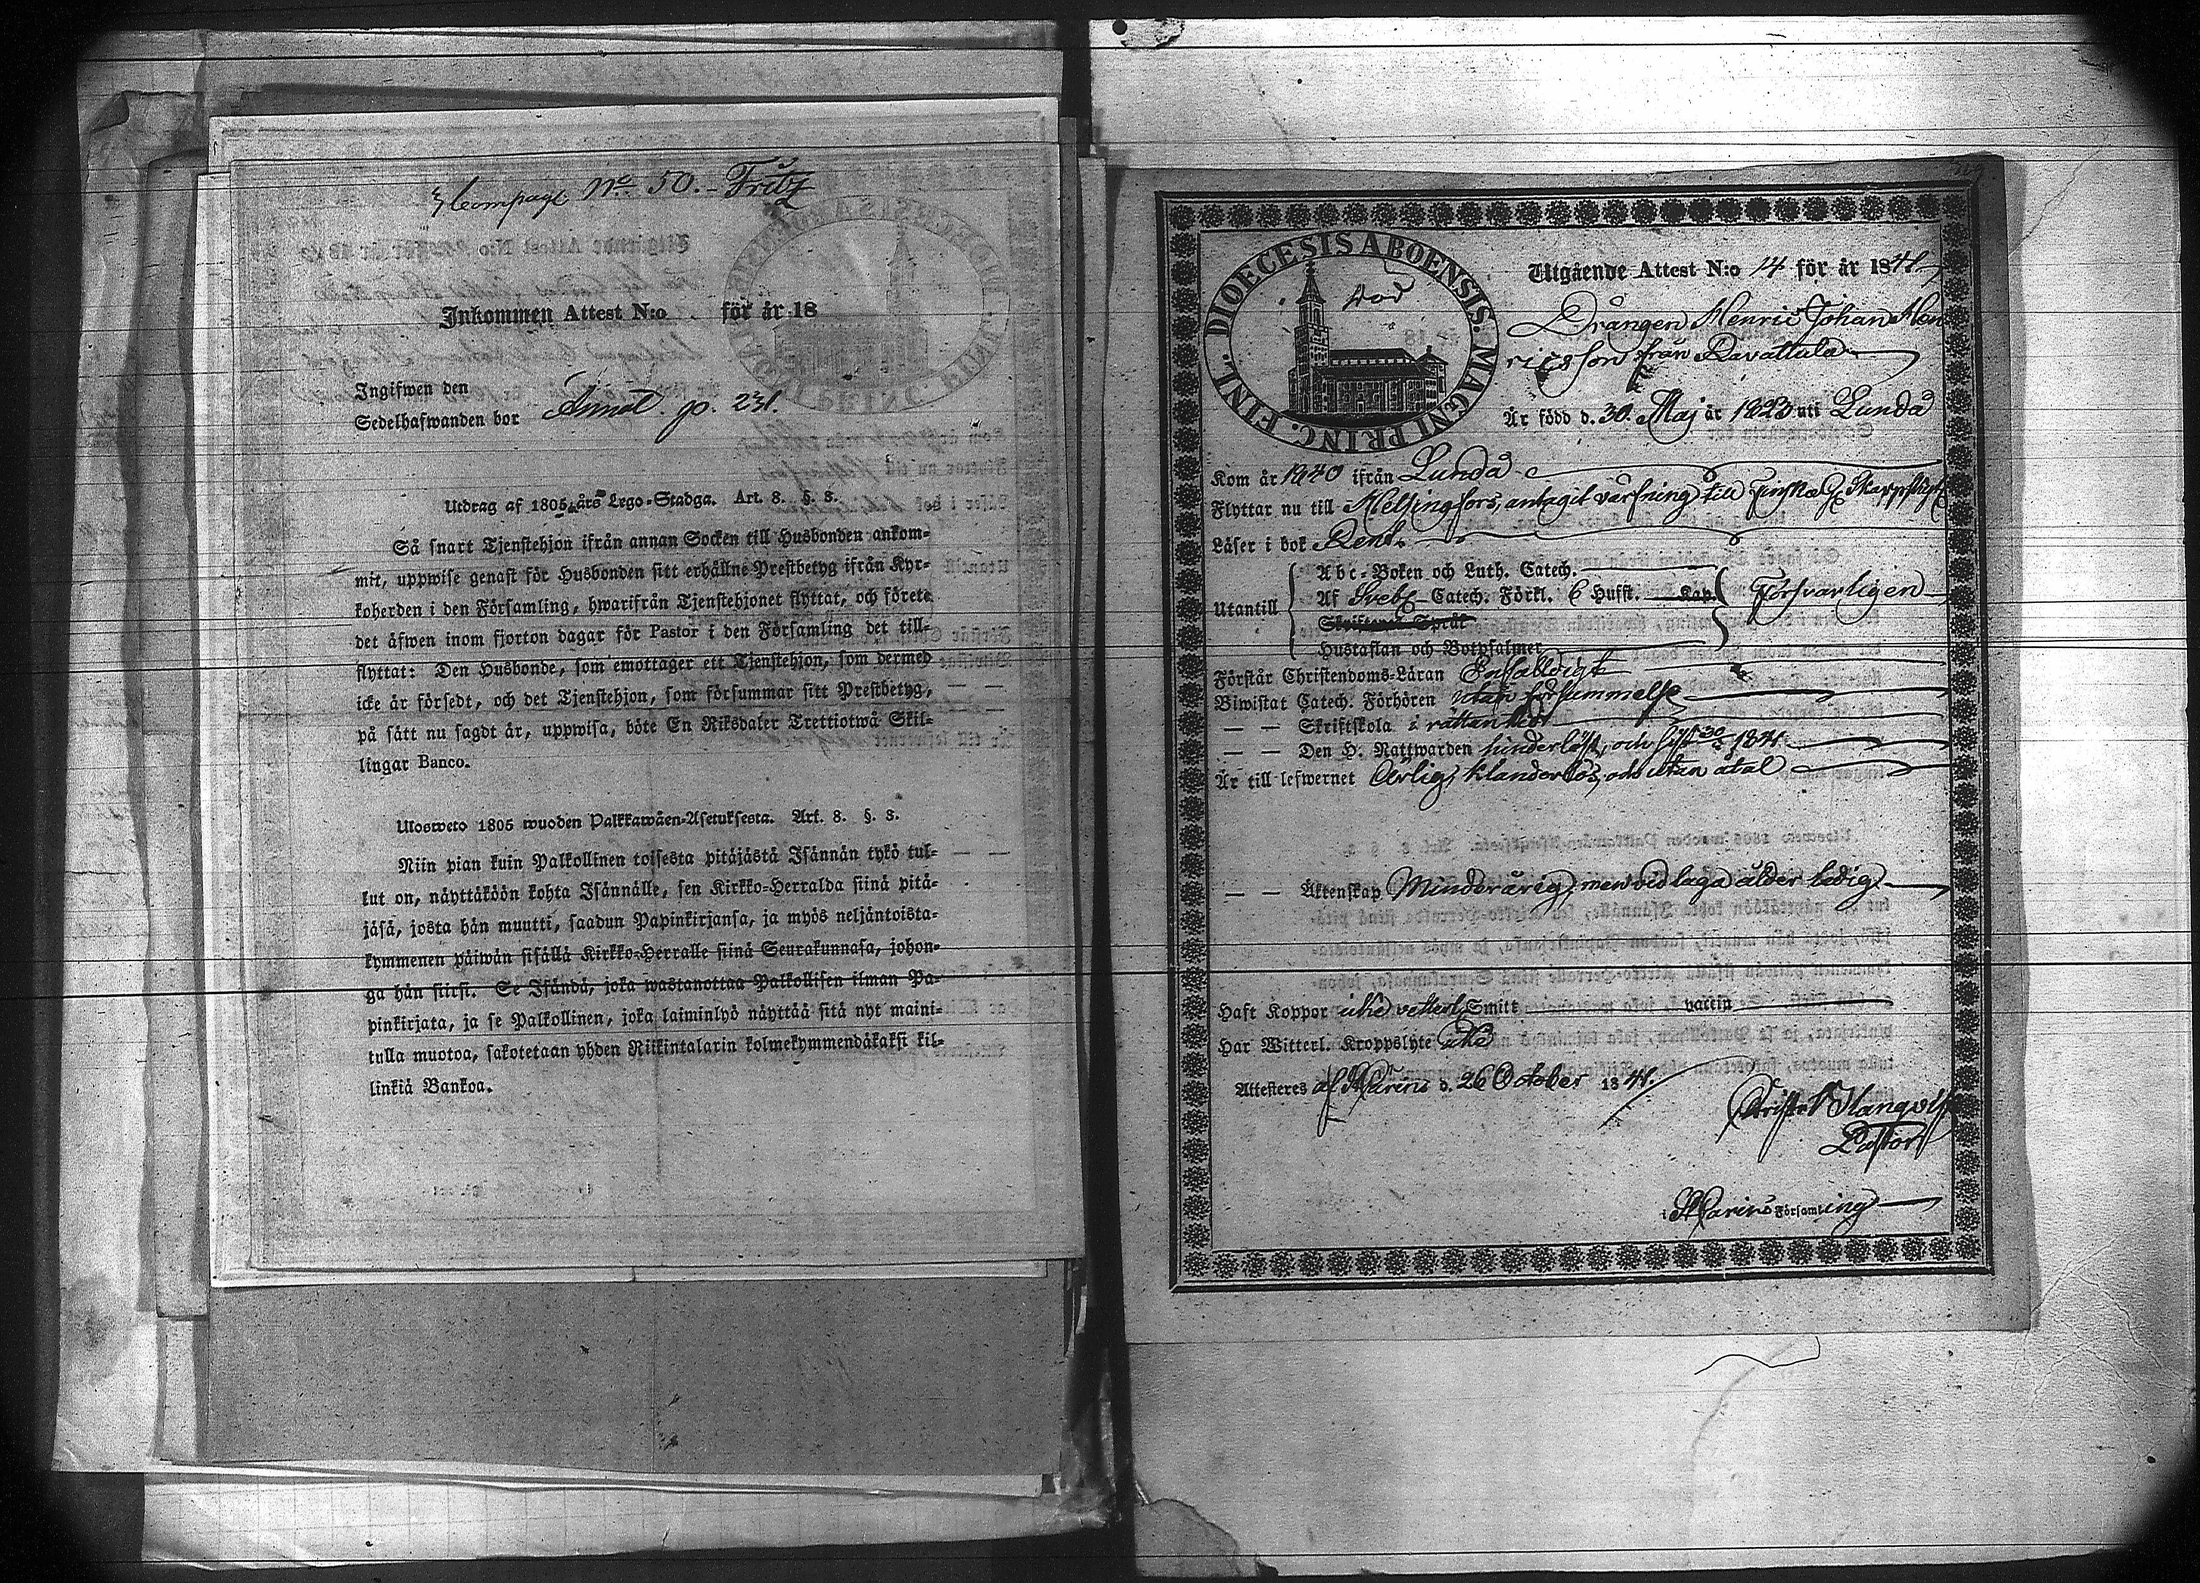 Compagt No 50. - Fritz
Inkommen Attest N:o för år 18
Ingifwen den
Sedelhafwanden bor Annot. p. 231.
Utdrag af 1805 års Lego-Stadga. Art. 8. §. 8.
Så snart Tjenstehjon ifrån annan Socken till Husbonden ankom-
mit, uppwise genast för Husbonden sitt erhållne Prestbetyg ifrån Kyr-
koherden i den Församling, hwarifrån Tjenstehjonet flyttat, och förete
det äfwen inom fjorton dagar för Pastor i den Församling det till-
flyttat: Den Husbonde, som emottager ett Tjenstehjon, som dermed
icke är försedt, och det Tjenstehjon, som försummar sitt Prestbetyg,
på sätt nu sagdt är, uppwisa, böte En Riksdaler Trettiotwå Skil-
lingar Banco.
Ulosweto 1805 wuoden Palkkawäen-Asetuksesta. Art. 8. §. 8.
Niin pian kuin Palkollinen toisesta pitäjästä Isännän tykö tul-
lut on, näyttäköön kohta Isännälle, sen Kirkko-Herralda siinä pitä-
jäsä, josta hän muutti, saadun Papinkirjansa, ja myös neljäntoista-
kymmenen päiwän sisällä Kirkko-Herralle siinä Seurakunnasa, johon-
ga hän siirsi. Se Isändä, joka wastanottaa Palkollisen ilman Pa-
pinkirjata, ja se Palkollinen, joka laiminlyö näyttää sitä nyt maini-
tulla muotoa, sakotetaan yhden Riikintalarin kolmekymmendäkaksi kil-
linkiä Bankoa.
DIOECESIS ABOENSIS. MAGNI PRINC. FINL.
död
Utgående Attest N:o 14 för år 1841
Drängen Henric Johan Hen
ricsson från Ravattula
Är född d. 30. Maj år 1823 uti Lundå
Kom år 1840 ifrån Lundå
Flyttar nu till Helsingfors, antagit värfning till Finska G. Skarpsk.
Läser i bok Rent.
Abc-Boken och Luth. Catech.
Utantill Af Sveb. Catech. Förkl. 6 Hufst. Kap. Försvarligen
Skriftenes Språk
Hustaflan och Botpsalmer
Förstår Christendoms-Läran Enfalldigt
Biwistat Catech. Förhören utan försummelse
— — Skriftskola i rättan tid
— — Den H. Nattwarden hinderlöst, och sist 1841.
Är till lefwernet Ärlig, klanderlös, och utan åtal
— — Äktenskap Minderårig, men vid laga ålder ledig
Haft Koppor icke veterl. Smitt vaccin
Har Witterl. Kroppslyte icke
Attesteres af St Carins d. 26 October 1841.
Pastor
i St Carins Församling